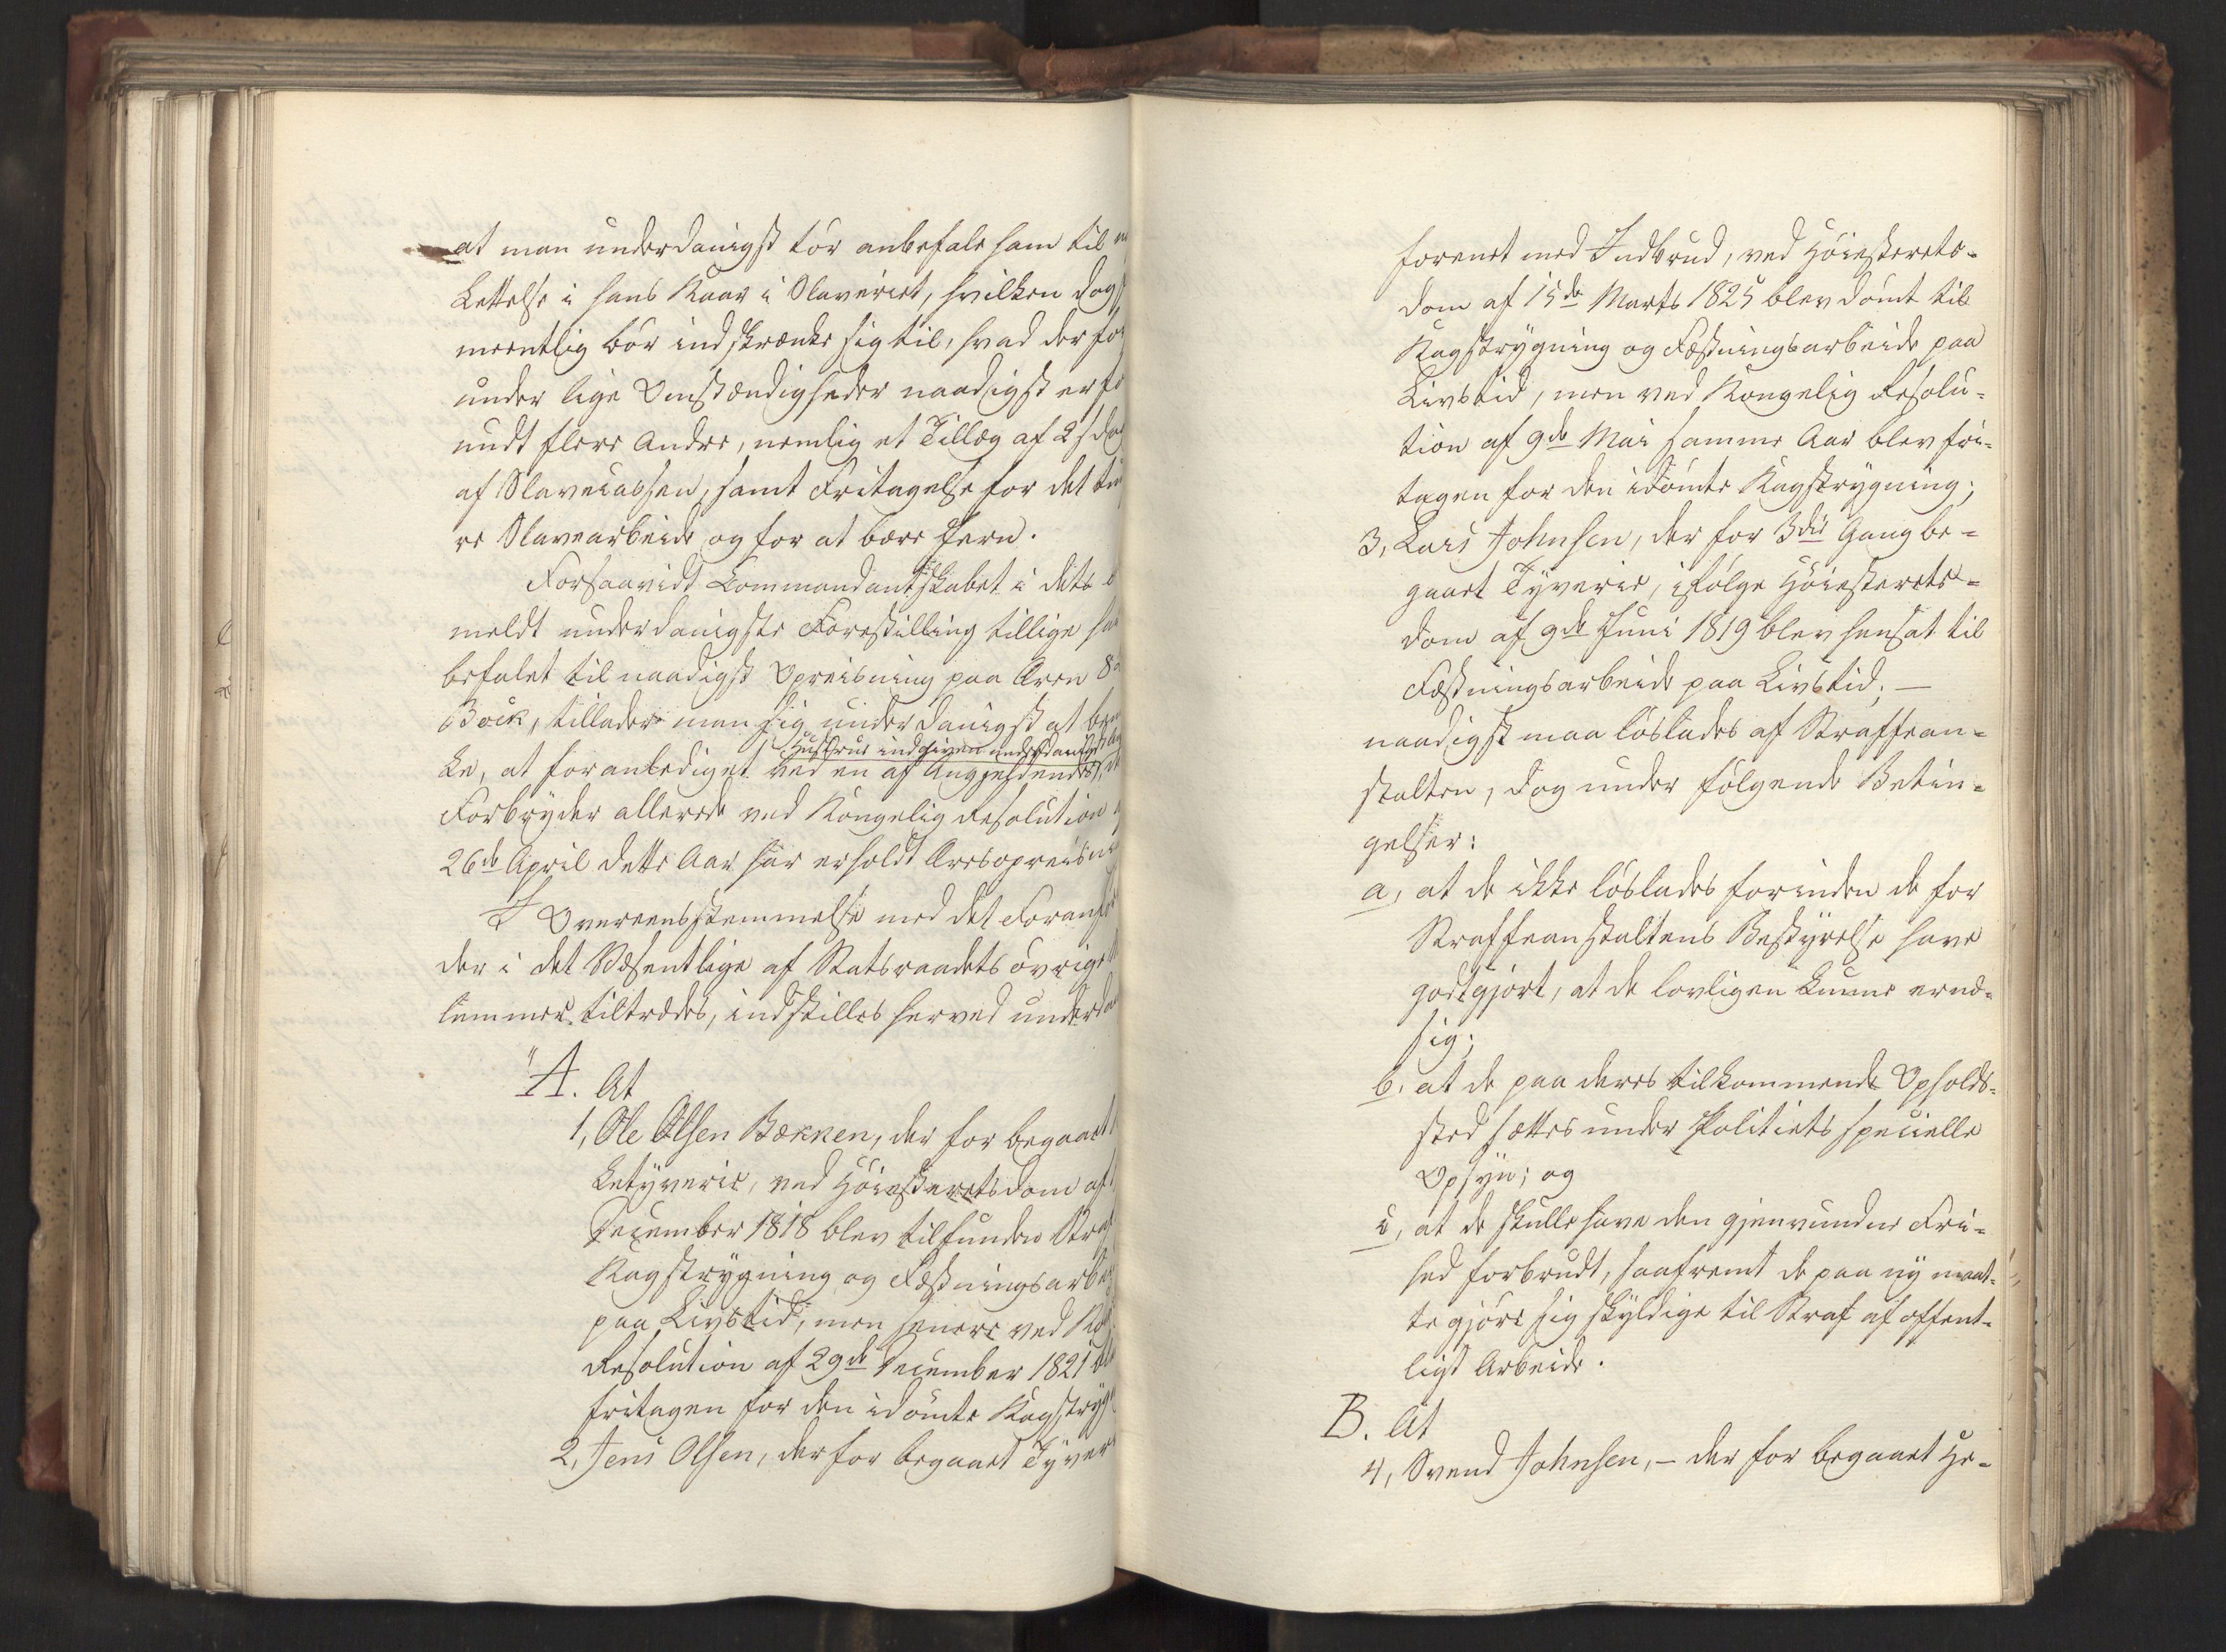 at man underdanigst tör anbefale ham til
Lettelse i hans Kaar i Slaveriet, hvilken dog
meentlig bör indskrænke sig til, hvad der for
under lige Omstændigheder naadigst er for
undt flere Andre, nemlig et Tillæg af 2 s dag
af Slavecassen, samt Fritagelse for det tun
re Slavearbeide og for at bære Jern.
Forsaavidt Commandantskabet i dets
meldt underdanigste Forestilling tillige har
befalet til naadigst Opreisning paa Æren
Bock, tillader man sig underdanigst at bem
Hustrue indgiven underdanigst
ke, at foranlediget ved en af Angjeldendes
Forbryder allerede ved Kongelig Resolution
26de April dette Aar har erholdt Æresopreisni
I Overeensstemmelse med det Foranför
der i det Væsentlige af Statsraadets övrige
lemmer tiltrædes, indstilles herved underda
"A. At
1, Ole Olsen Bækken, der for begaaet
ketyverie, ved Höiesteretsdom af
December 1818 blev tilfunden Straf
Kagstrygning og Fæstningsarbei
paa Livstid, men senere ved Ko
Resolution af 29de December 1821 ble
fritagen for den idömte Kagstryg
2, Jens Olsen, der for begaaet Tyver
forenet med Indbrud, ved Höiesterets-
dom af 15de Marts 1825 blev dömt til
Kagstrygning og Fæstningsarbeide paa
Livstid, men ved Kongelig Resolu-
tion af 9de Mai samme Aar blev fri-
tagen for den idömte Kagstrygning;
3, Lars Johnsen, der for 3die Gang be-
gaaet Tyverie, ifölge Höiesterets-
dom af 9de Juni 1819 blev hensat til
Fæstningsarbeide paa Livstid; —
naadigst maa löslades af Straffean-
stalten, dog under fölgende Betin-
gelser:
a, at de ikke löslades forinden de for
Straffeanstaltens Bestyrelse have
godtgjort, at de lovligen kunne ernæ-
sig;
b. at de paa deres tilkommende Opholds-
sted sættes under Politiets specielle
Opsyn; og
c, at de skulle have den gjenvundne Fri-
hed forbrudt, saafremt de paa ny maat-
te gjöre sig skyldige til Straf af offent-
ligt Arbeide.
B. At
4, Svend Johnsen, – der for begaaet He-